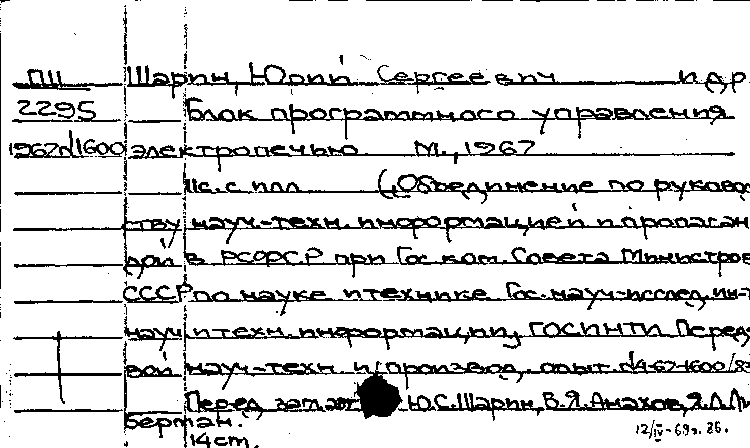 ПШ Шарин, Юрий Сергеевич и др
2295 Блок программного управления
1967/1600 электропечью М., 1967
11с. с илл (Объединение по руковод
ству науч-техн. информацией и пропаган
дой в РСФСР при Гос. ком. Совета Министров
СССР по науке и технике Гос. науч-исслед. ин-т
науч и техн. информации, ГОСИНТИ Передо
вой науч-техн и произвд. опыт. №4-67-1600/83
Перед загл авт Ю.С. Шарин, В.Я. Анахов, Я.Л.
берман.
14 cm.
12/IV-69г. 26.